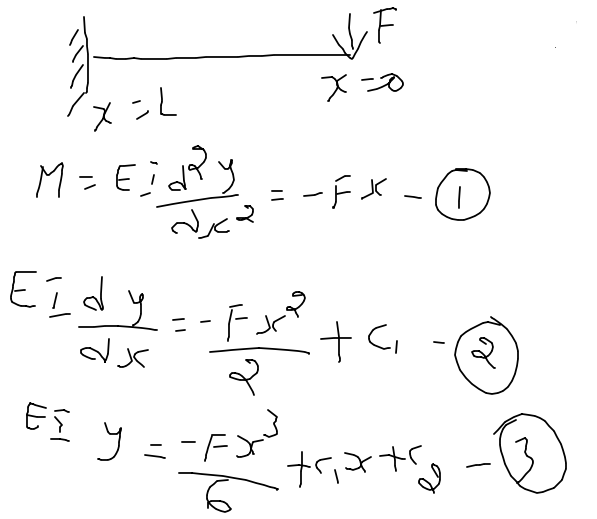 F
x = L
x = 0
M = EI d²y/dx² = -Fx - ①
EI dy/dx = -Fx²/2 + C₁ - ②
EI y = -Fx³/6 + C₁x + C₂ - ③